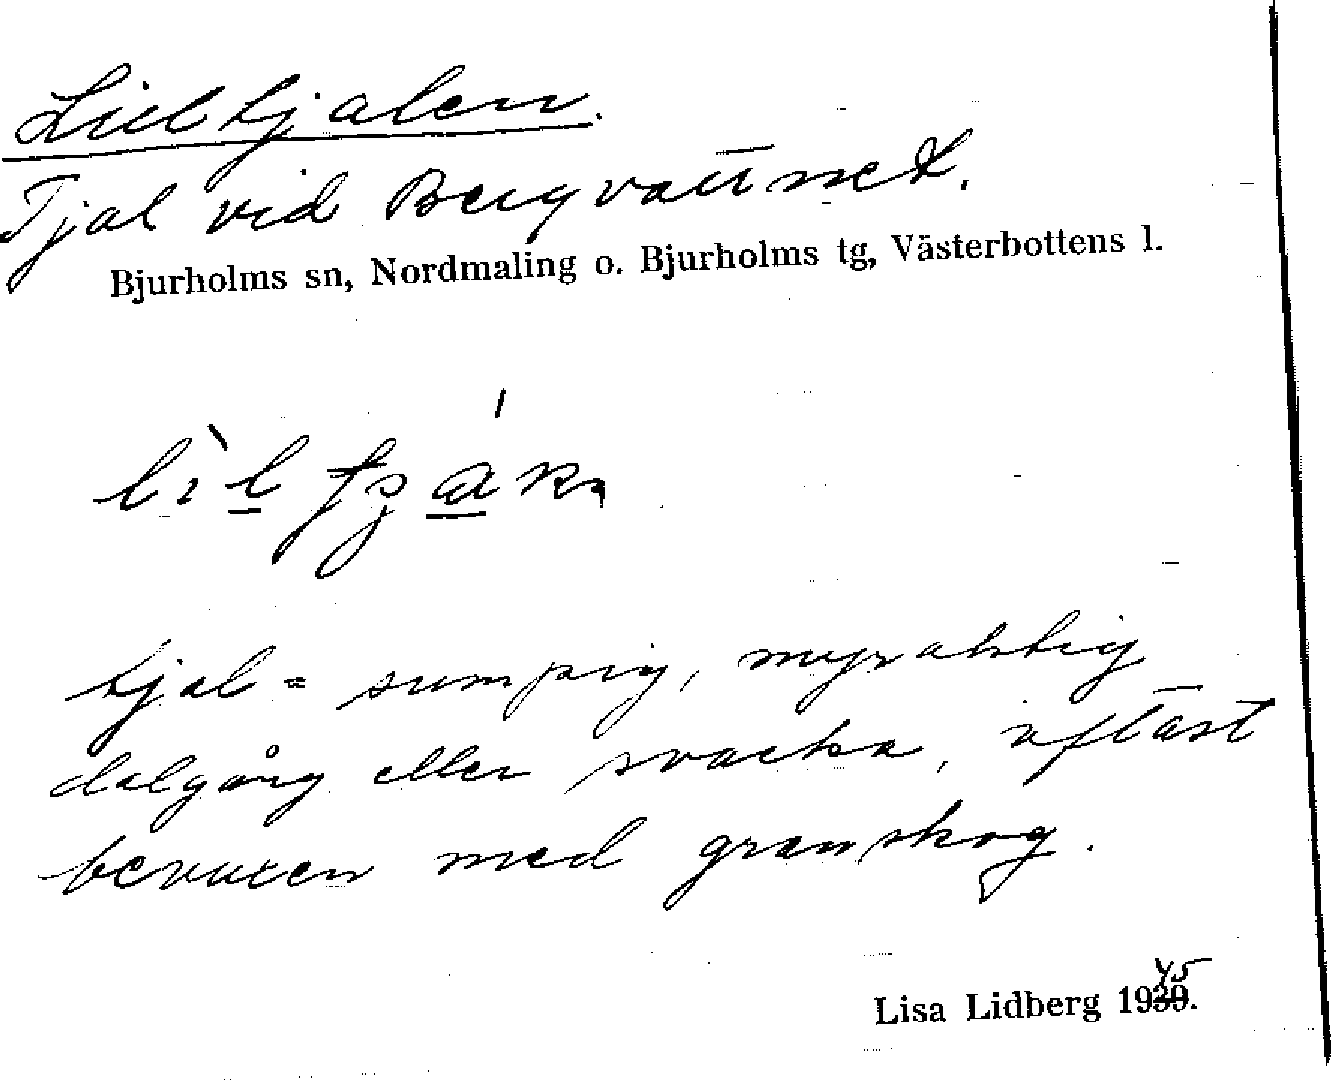 Lilltjalen.
Tjal vid Bergvattnet.
Bjurholms sn, Nordmaling o. Bjurholms tg, Västerbottens l.
tjal = sumpig, myraktig
dalgång eller svacka, oftast
bevuxen med granskog.
Lisa Lidberg 1945.